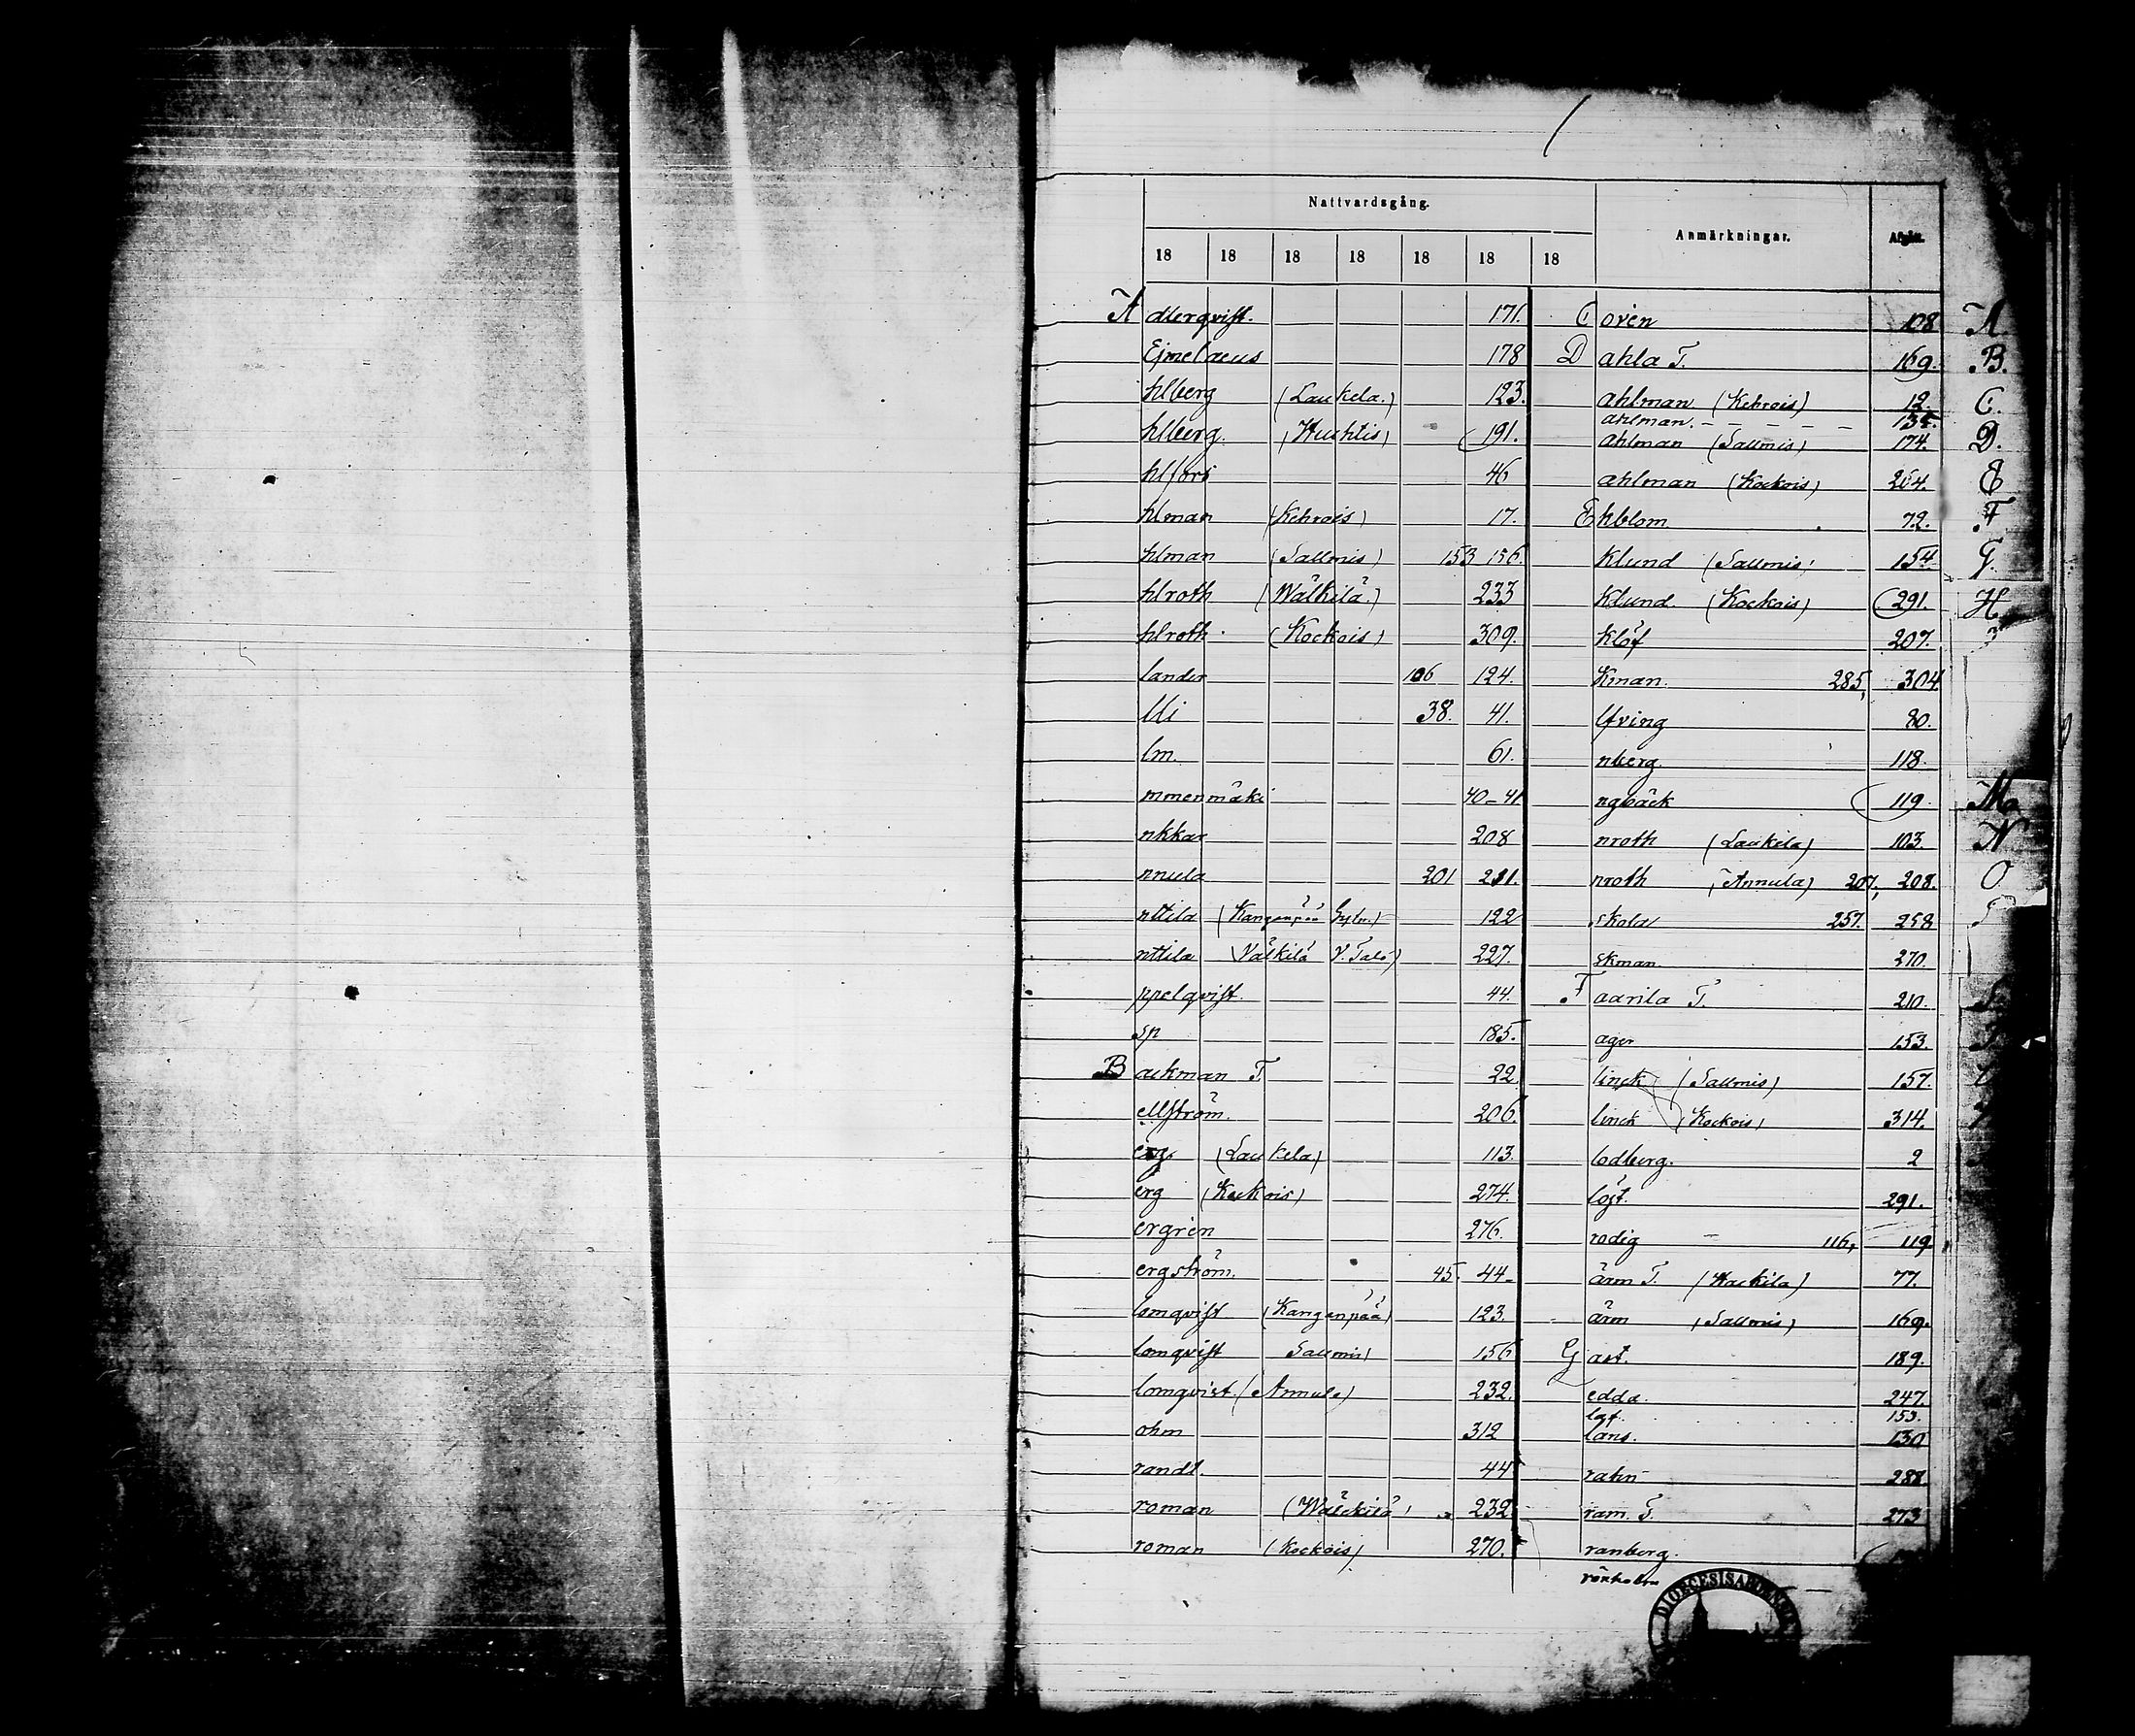 Nattvardsgång.
Anmärkningar.
Afgått.
18 18 18 18 18 18 18
A dlerqvist. 171.
Ejmelaeus 178
hlberg (Laukela.) 123.
hlberg. (Huhtis) 191.
hlfors 46
hlman (Kehrois) 17.
hlman (Sallmis) 153 156.
hlroth (Wälkilä.) 233
hlroth (Kockois) 309.
lander 106 124.
lli 38. 41.
lm. 61.
mmenmäki 40-41
nkkar 208
nnula 201 211.
nttila (Kangenpää) 122
nttila (Välkilä V. Talo) 227.
ppelqvist. 44.
sp 185.
B ackman T. 22.
ellström. 206.
erg (Laukela) 113.
erg (Kockois) 274.
ergren 276.
ergström. 45. 44
lomqvist (Kangenpää) 123.
lomqvist Sallmis) 156
lomqvist. (Annula) 232.
ohm 312
randt. 44
roman (Wälckilä) 232
roman (Kockois) 270.
C oren 108
D ahla T. 169.
ahlman (Kehrois) 12.
ahlman. 134.
ahlman (Sallmis) 174.
ahlman (Kockois) 264.
E kblom 72.
klund (Sallmis) 154
klund. (Kockois) 291.
klöf 207.
kman. 285, 304
lfving 80.
nberg. 118.
ngbäck 119
nroth (Laukela) 103.
nroth (Annula) 207, 208.
sköld 257. 258
skman. 270.
F aarila T. 210.
ager 153.
linck (Sallmis) 157.
linck (Kockois) 314.
lodberg. 2
löjt. 291.
rodig 116, 119
ärm T. (Kackila) 77.
ärm (Sallmis) 169.
G ast. 189.
edda. 247.
153.
lans. 130
rahn 288
ram. T. 273
ranberg.
rönholm
A.
B.
C.
D.
E
F
G.
H
Ma
N
O
DIOECESIS ABOENSIS